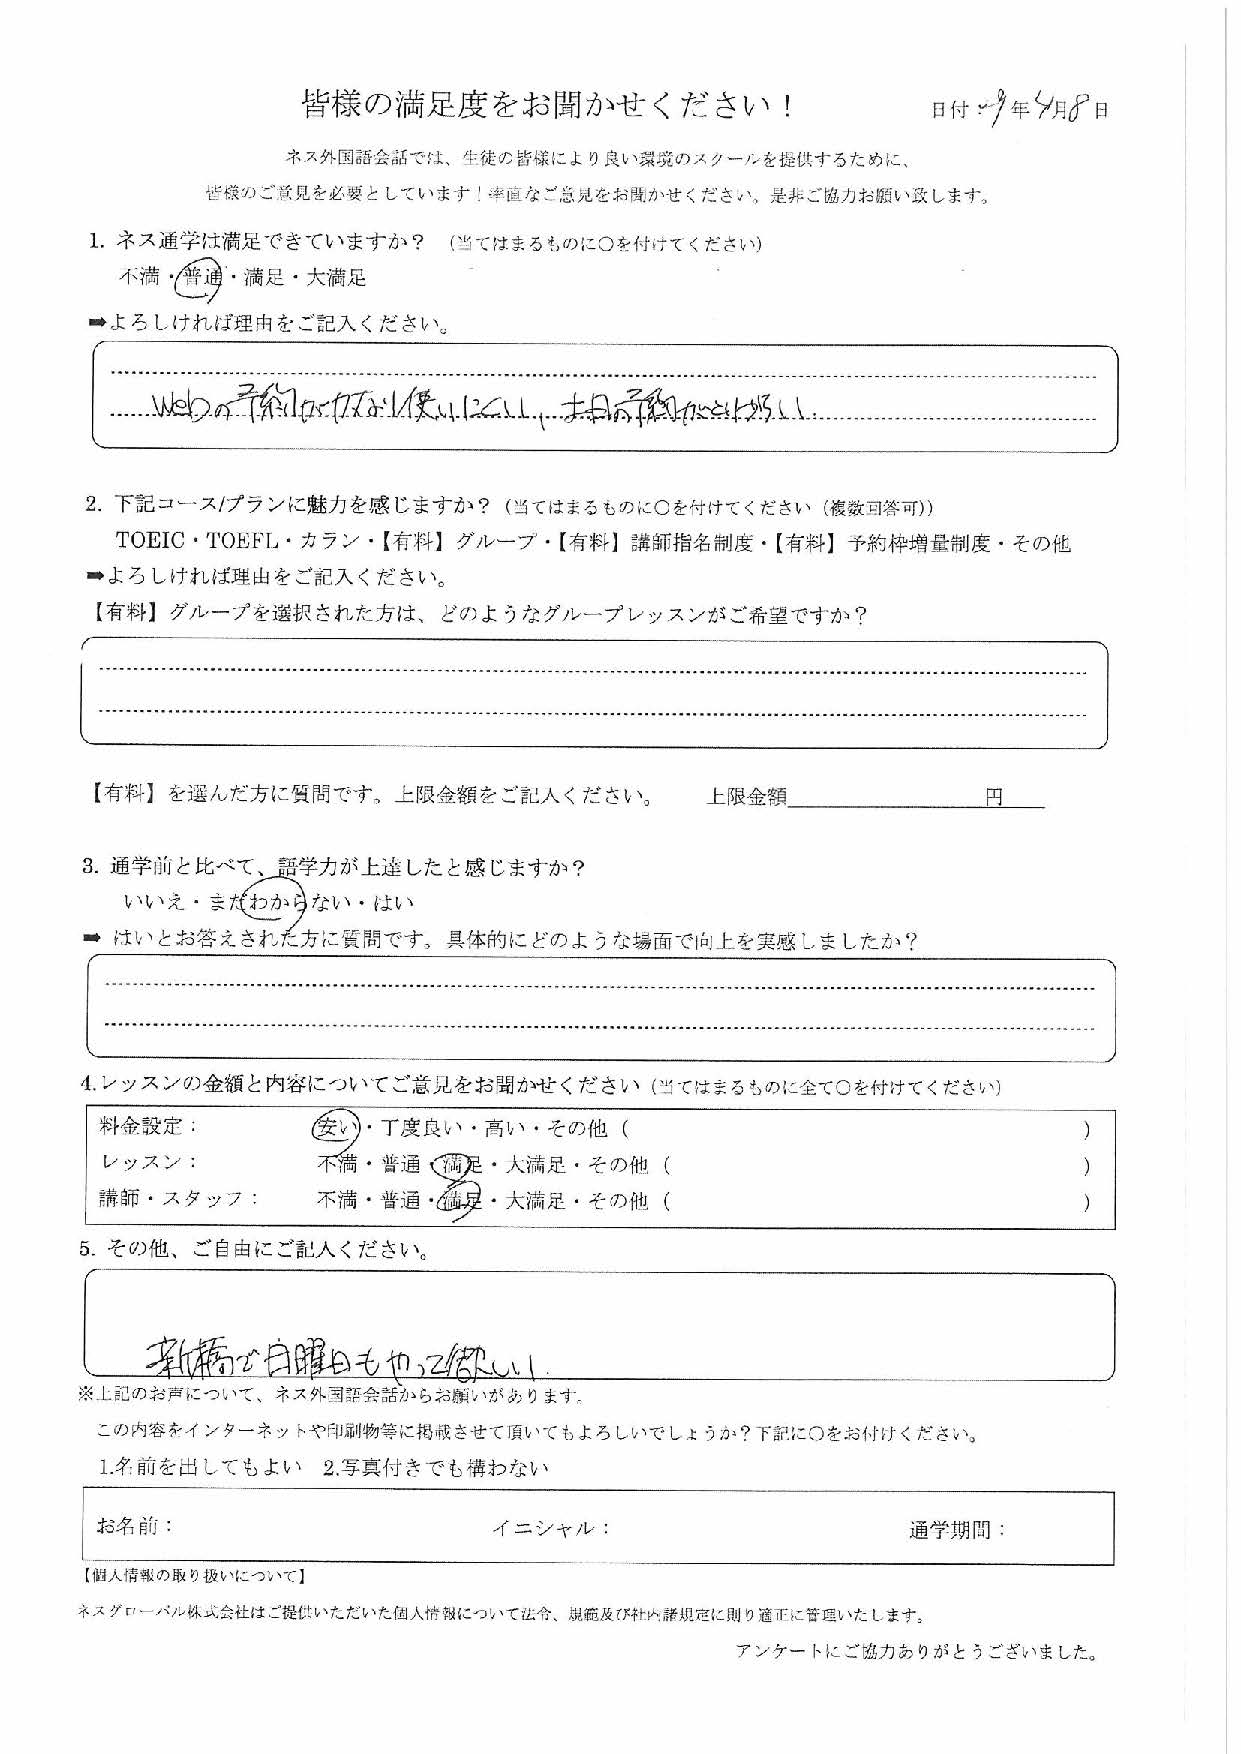 皆様の満足度をお聞かせください！
日付 29年4月8日
ネス外国語会話では、生徒の皆様により良い環境のスクールを提供するために、
皆様のご意見を必要としています！率直なご意見をお聞かせください。是非ご協力お願い致します。
1. ネス通学は満足できていますか？ （当てはまるものに〇を付けてください）
不満・普通・満足・大満足
➡よろしければ理由をご記入ください。
Webの予約がかなり使いにくい、土日の予約がとりづらい.
2. 下記コース/プランに魅力を感じますか？（当てはまるものに〇を付けてください（複数回答可））
TOEIC・TOEFL・カラン・【有料】グループ・【有料】講師指名制度・【有料】予約枠増量制度・その他
➡よろしければ理由をご記入ください。
【有料】グループを選択された方は、どのようなグループレッスンがご希望ですか？
【有料】を選んだ方に質問です。上限金額をご記入ください。 上限金額 円
3. 通学前と比べて、語学力が上達したと感じますか？
いいえ・まだわからない・はい
➡ はいとお答えされた方に質問です。具体的にどのような場面で向上を実感しましたか？
4.レッスンの金額と内容についてご意見をお聞かせください（当てはまるものに全て〇を付けてください）
料金設定： 安い・丁度良い・高い・その他（ ）
レッスン： 不満・普通・満足・大満足・その他（ ）
講師・スタッフ： 不満・普通・満足・大満足・その他（ ）
5. その他、ご自由にご記入ください。
新橋で日曜日もやって欲しい.
※上記のお声について、ネス外国語会話からお願いがあります。
この内容をインターネットや印刷物等に掲載させて頂いてもよろしいでしょうか？下記に〇をお付けください。
1.名前を出してもよい 2.写真付きでも構わない
お名前： イニシャル： 通学期間：
【個人情報の取り扱いについて】
ネスグローバル株式会社はご提供いただいた個人情報について法令、規範及び社内諸規定に則り適正に管理いたします。
アンケートにご協力ありがとうございました。